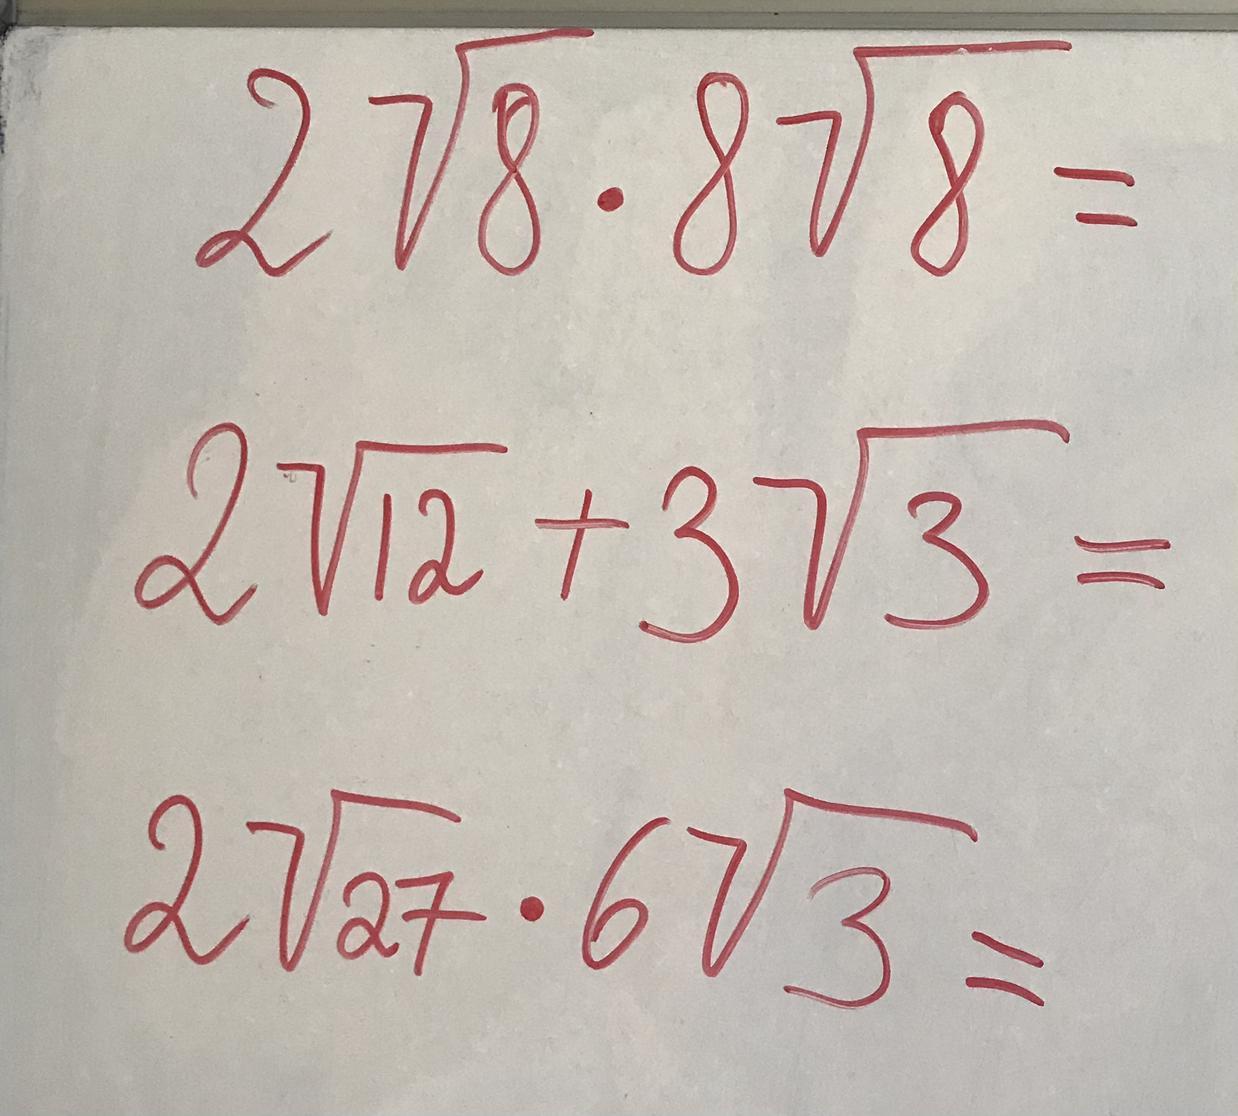 2√8 · 8√8 =
2√12 + 3√3 =
2√27 · 6√3 =